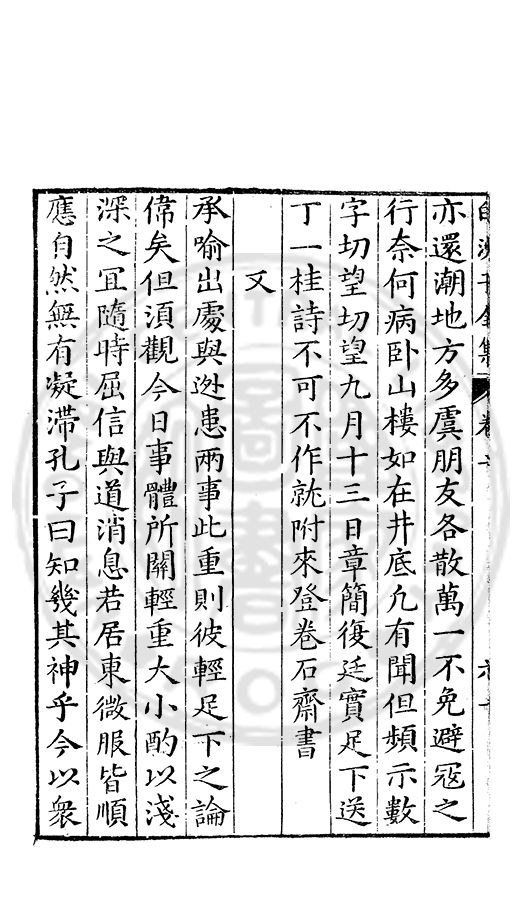 亦還潮地方多虞朋友各散萬一不免避冦之
行奈何病卧山樓如在井底凢有聞但頻示數
字切望切望九月十三日章簡復廷實足下送
丁一桂詩不可不作就附來登卷石齋書
又
承喻出處與迯患兩事此重則彼輕足下之論
偉矣但須觀今日事體所關輕重大小酌以淺
深之冝隨時屈信與道消息若居東微服皆順
應自然無有凝滯孔子曰知幾其神乎今以衆